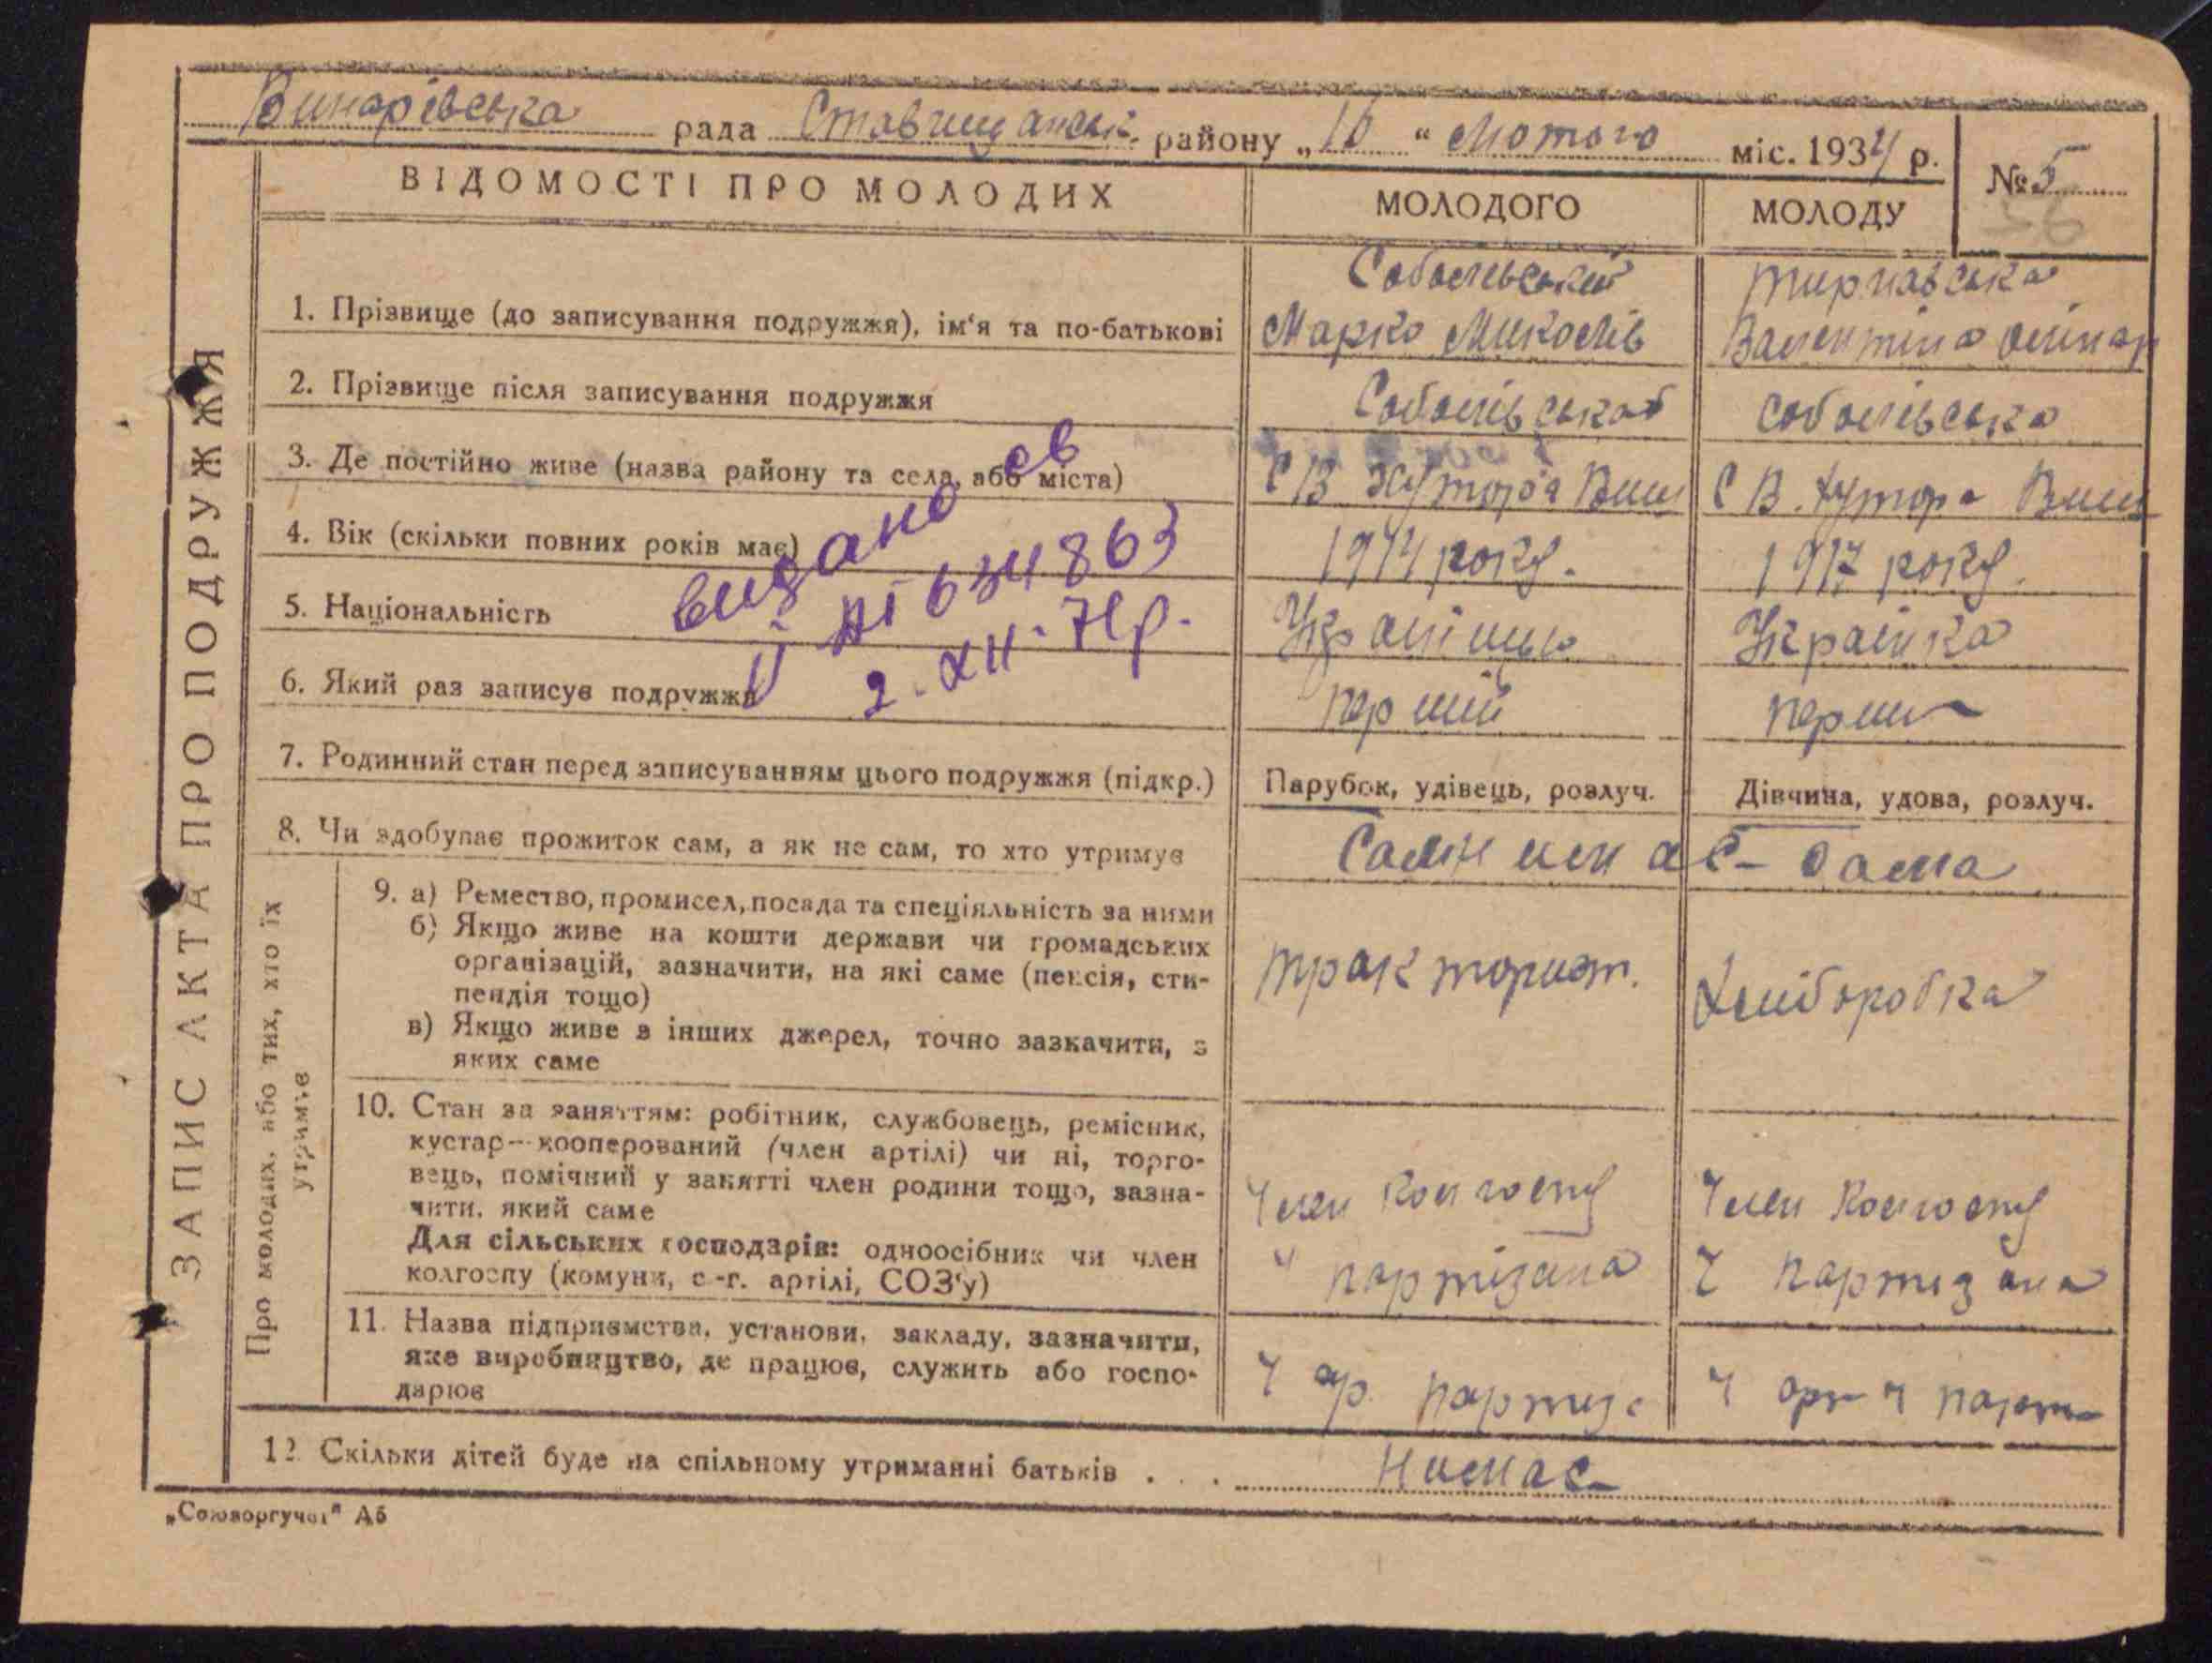 Винарівська рада Ставищанськ. району „10“ Лютого міс. 1934 р.
№ 5
ВІДОМОСТІ ПРО МОЛОДИХ
МОЛОДОГО
МОЛОДУ
ЗАПИС АКТА ПРО ПОДРУЖЖЯ
1. Прізвище (до записування подружжя), ім‘я та по-батькові
Соболевський
Марко Миколів
Тирнавська
Валентіна Олінар
2. Прізвище після записування подружжя
Соболівська
3. Де постійно живе (назва району та села, або міста)
С В Хутора Вищ
С В. Хутора Вищ
4. Вік (скільки повних років має)
1914 року.
1917 року.
5. Національність
Українка
6. Який раз записує подружжя
перший
видано св
ІІ 634863
2. XII. 71р.
7. Родинний стан перед записуванням цього подружжя (підкр.)
Парубок, удівець, розлуч.
Дівчина, удова, розлуч.
8. Чи здобуває прожиток сам, а як не сам, то хто утримує
сама
Про молодих, або тих, хто їх
утримує
9. а) Ремество, промисел, посада та спеціяльність за ними
б) Якщо живе на кошти держави чи громадських
організацій, зазначити, на які саме (пенсія, сти-
пендія тощо)
в) Якщо живе з інших джерел, точно зазначити, з
яких саме
тракторист.
Хліборобка
10. Стан за заняттям: робітник, службовець, ремісник,
кустар—кооперований (член артілі) чи ні, торго-
вець, помічний у занятті член родини тощо, зазна-
чити, який саме
Для сільських господарів: одноосібник чи член
колгоспу (комуни, с.-г. артілі, СОЗ‘у)
Член колгоспу
ч партізана
Член колгоспу
ч партизана
11. Назва підприємства, установи, закладу, зазначити,
яке виробництво, де працює, служить або госпо-
дарює
12. Скільки дітей буде на спільному утриманні батьків . . .
Нимає
„Союзоргучот“ А5